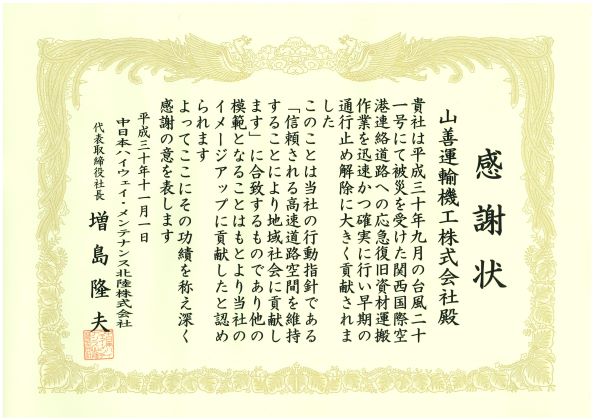 感謝状
山善運輸機工株式会社殿
貴社は平成三十年九月の台風二十
一号にて被災を受けた関西国際空
港連絡道路への応急復旧資材運搬
作業を迅速かつ確実に行い早期の
通行止め解除に大きく貢献されま
した
このことは当社の行動指針である
「信頼される高速道路空間を維持
することにより地域社会に貢献し
ます」に合致するものであり他の
模範となることはもとより当社の
イメージアップに貢献したと認め
られます
よってここにその功績を称え深く
感謝の意を表します
平成三十年十一月一日
中日本ハイウェイ・メンテナンス北陸株式会社
代表取締役社長 増島隆夫